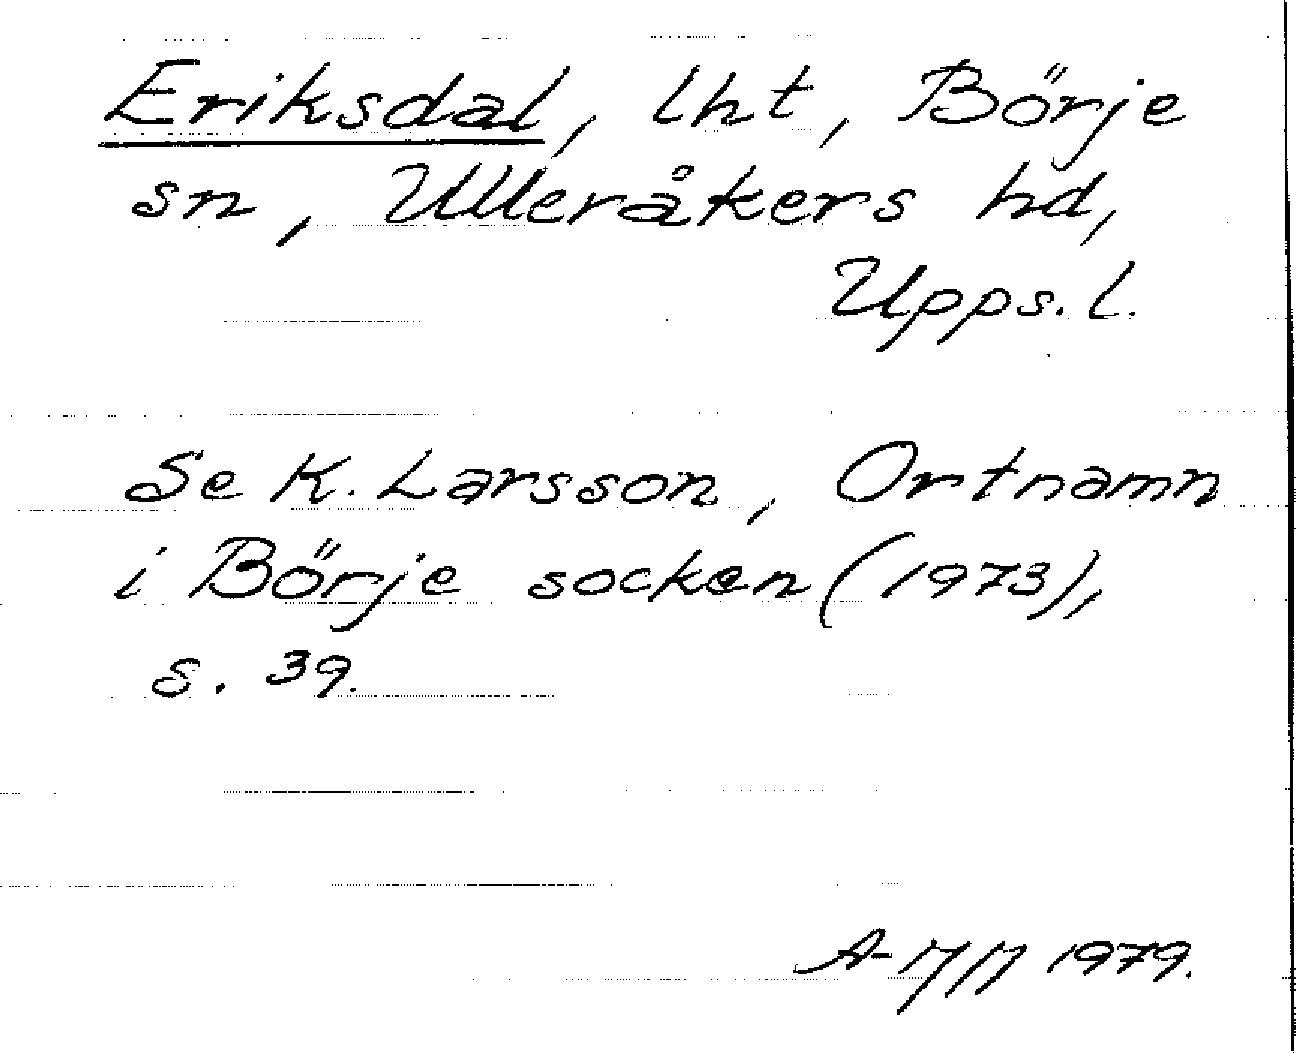 Eriksdal, lht, Börje
sn, Ulleråkers hd,
Upps. l.
Se K. Larsson, Ortnamn
i Börje socken (1973),
s. 39.
1979.